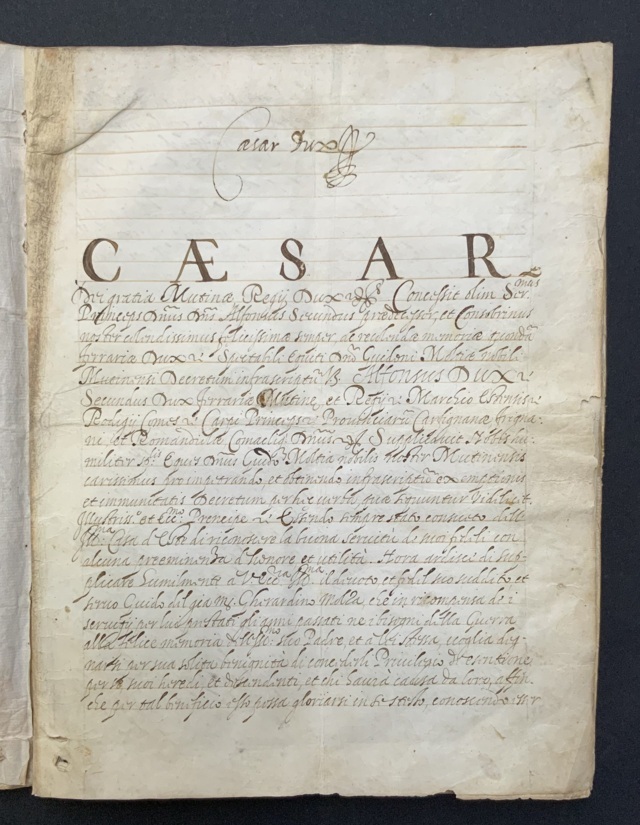 Cæsar Dux
CÆSAR
Dei gratia Mutinæ, Regij, Dux Concessit olim Ser.mus
Princeps Alfonsus Secundus prædecessor, et Consobrinus
noster colendissimus felicissimæ semper, ac recolendæ memoriæ
ferrariæ Dux Guidoni nobili
Mutinensi Decretum infrascriptum Alfonsus Dux
Secundus Dux ferrariæ Mutinæ, et Regij Marchio Estensis
Rodigij Comes Carpi Princeps Provinciarum Carfignanæ frigna-
ne, et Romandiolæ Supplicavit Nobis hu-
militer Eques nobilis noster Mutinensis
carissimus pro impetrando, et obtinendo infrascripto exemptionis
et immunitatis Decretum per hæc verba, quæ
Illustriss.o et Ecc.mo Prencipe Essendo sempre stato consueto dell'
Casa d'Este di riconoscere la buona servitù de suoi fideli con
alcuna preeminenza d'honore et utilità. Hora ardisce di sup-
plicare humilmente à il devoto et fidel suo suddito et
servo Guido del già Gherardino che in ricompensa de i
servigij per lui prestati gli anni passati ne i bisogni della Guerra
alla felice memoria suo Padre, et à lei stessa, voglia deg-
narsi per sua solita benignità di concederli Privilegio d'esentione
per se, suoi heredi, et descendenti, et chi haurà causa da loro, affin-
che per tal beneficio esso possa gloriarsi in se stesso, conoscendo